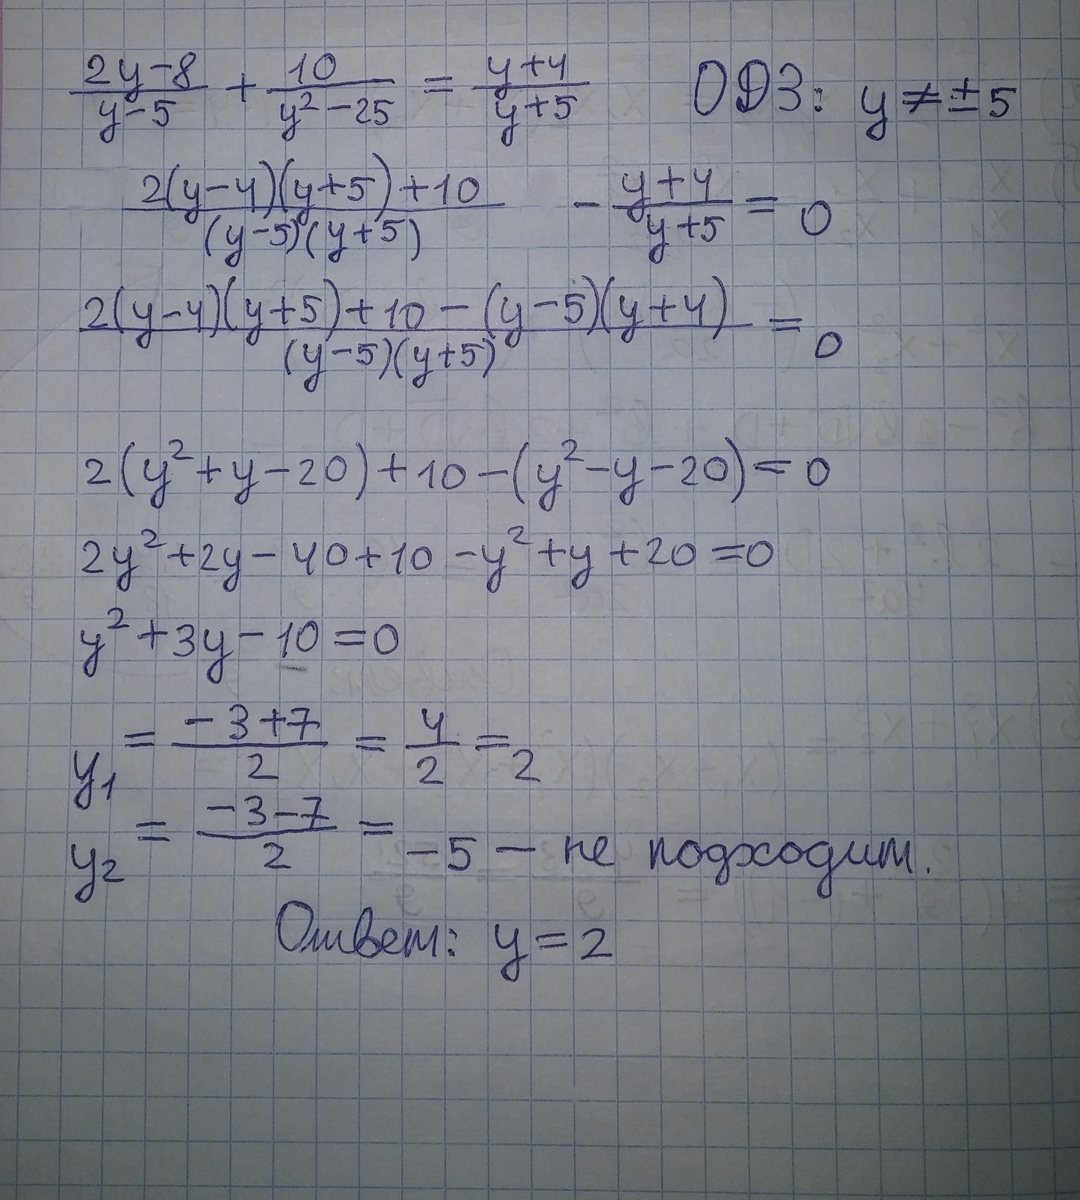 (2y-8)/(y-5) + 10/(y²-25) = (y+4)/(y+5) ОДЗ: y ≠ ±5
(2(y-4)(y+5)+10)/((y-5)(y+5)) - (y+4)/(y+5) = 0
(2(y-4)(y+5)+10-(y-5)(y+4))/((y-5)(y+5)) = 0
2(y²+y-20)+10-(y²-y-20)=0
2y²+2y-40+10-y²+y+20=0
y²+3y-10=0
y₁ = (-3+7)/2 = 4/2 = 2
y₂ = (-3-7)/2 = -5 – не подходит.
Ответ: y=2